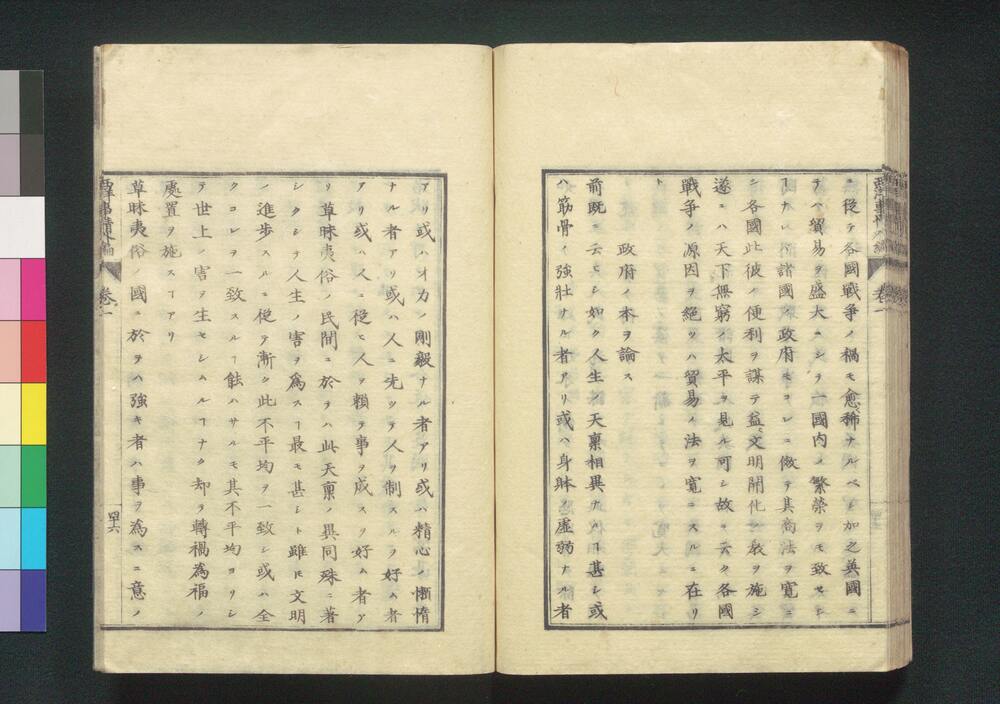 ニ從テ各國戰爭ノ禍モ愈稀ナルベシ加之英國ニ
テハ貿易ヲ盛大ニシテ一國内ノ繁榮ヲモ致セシ
ヿナレハ諸國ノ政府モコレニ傚テ其商法ヲ寛ニ
シ各國此彼ノ便利ヲ謀テ益文明開化ノ教ヲ施シ
遂ニハ天下無窮ノ太平ヲ見ル可シ故ニ云ク各國
戰爭ノ源因ヲ絶ツハ貿易ノ法ヲ寛ニスルニ在リ
ト
政府ノ本ヲ論ス
前既ニ云ヒシ如ク人生ノ天稟相異ナルヿ甚シ或
ハ筋骨ノ強壯ナル者アリ或ハ身躰ノ虚弱ナル者
西洋事情外編 卷一
アリ或ハオ力ノ剛毅ナル者アリ或ハ精心ノ懶惰
ナル者アリ或ハ人ニ先ツテ人ヲ制スルヲ好ム者
アリ或ハ人ニ從ヒ人ニ頼テ事ヲ成スヲ好ム者ア
リ草昧夷俗ノ民間ニ於テハ此天稟ノ異同殊ニ著
シクシテ人生ノ害ヲ爲スヿ最モ甚シト雖𪜈文明
ノ進歩スルニ從テ漸ク此不平均ヲ一致シ或ハ全
クコレヲ一致スルヿ能ハサルモ其不平均ヨリシ
テ世上ノ害ヲ生セシムルヿナク却テ轉禍為福ノ
處置ヲ施スヿアリ
草昧夷俗ノ國ニ於テハ強キ者ハ事ヲ為スニ意ノ
西洋事情外編 卷之一 四十六